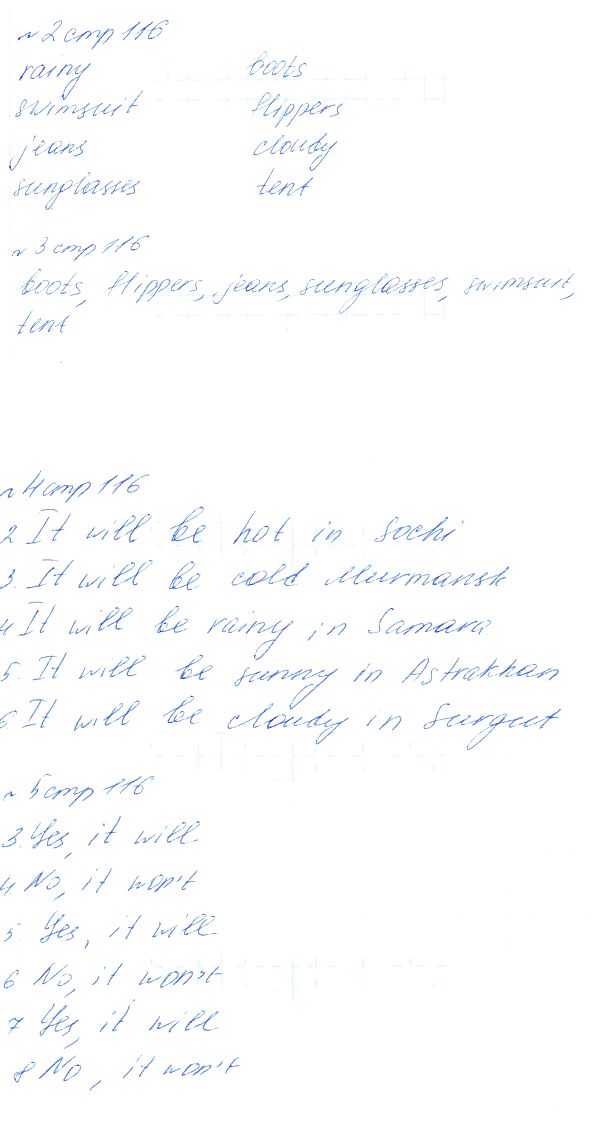 ~ 2 стр 116
rainy boots
swimsuit flippers
jeans cloudy
sunglasses tent
~ 3 стр 116
boots, flippers, jeans, sunglasses, swimsuit,
tent
~ 4 стр 116
2 It will be hot in Sochi
3. It will be cold Murmansk
4 It will be rainy in Samara
5. It will be sunny in Astrakhan
6. It will be cloudy in Surgut
~ 5 стр 116
3. Yes, it will
4 No, it won't
5. Yes, it will
6 No, it won't
7 Yes, it will
8 No, it won't